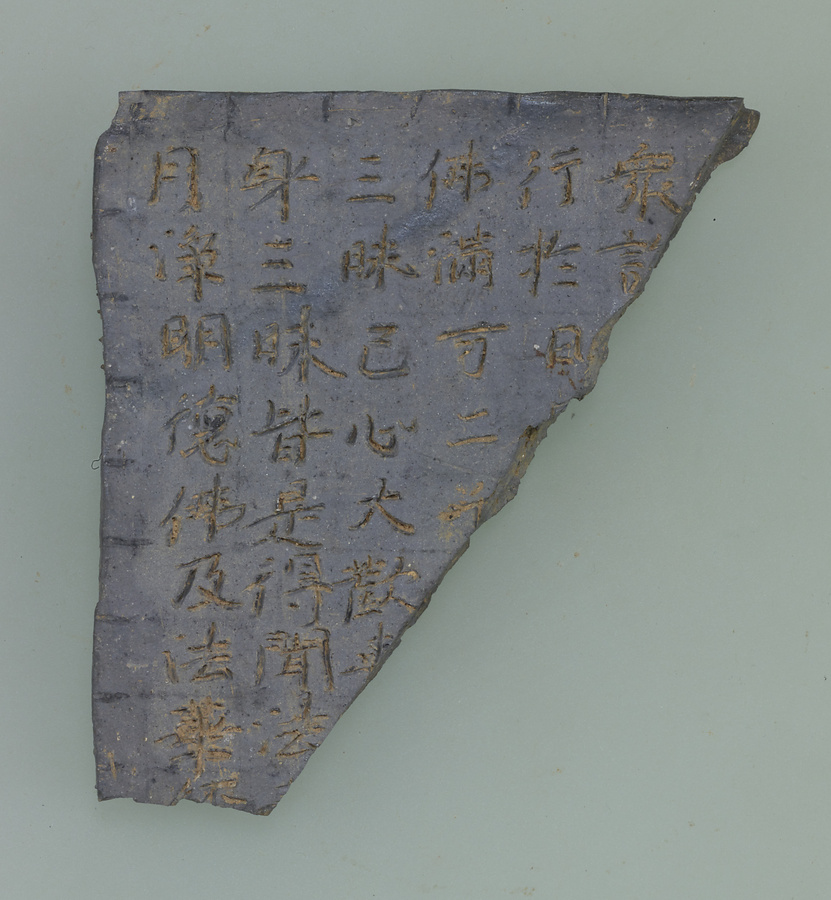 衆
行於日
佛滿万二
三昧已心大歡
身三昧皆是得聞法
月淨明德佛及法華